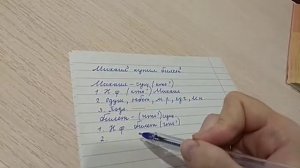 Михаил купил билет
Михаил - сущ (кто?)
1. Н ф (кто?) Михаил
2. одуш, м.р, ед.ч,
3.
билет - (что?) сущ.
1 Н ф билет (что?)
2